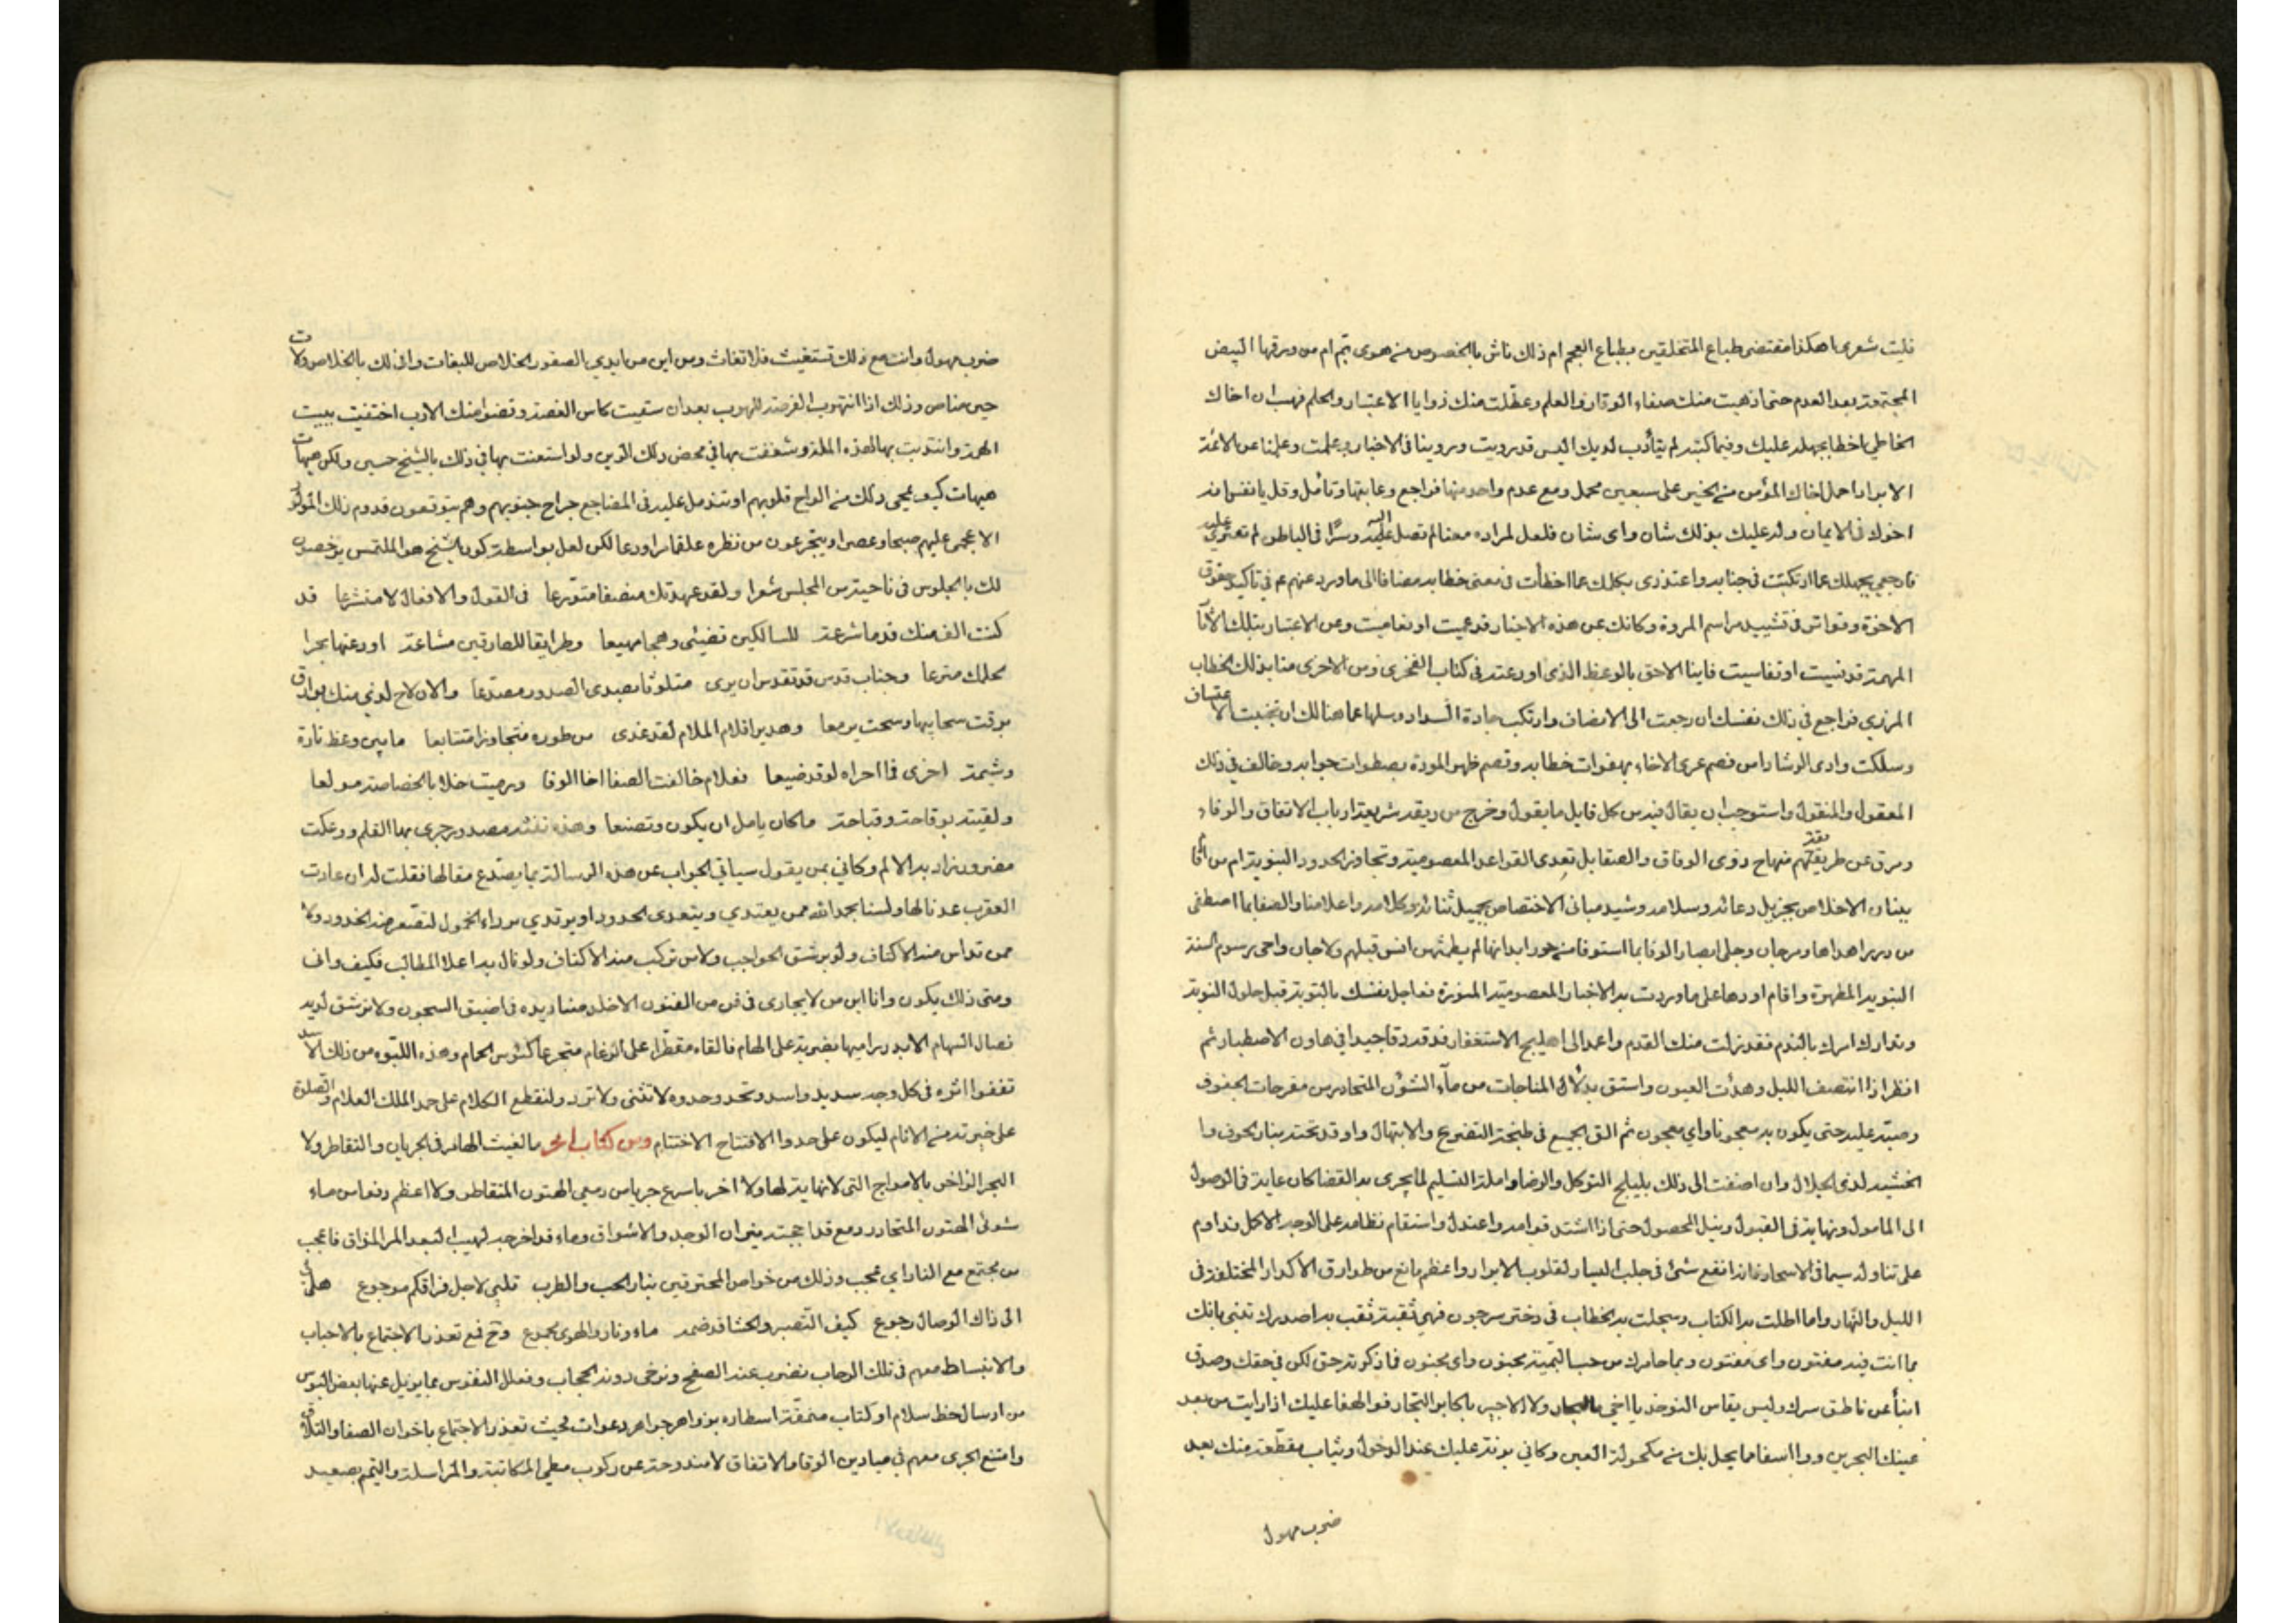 فليت شعرى اهكذا مقتضى طباع المتخلقين بطباع العجم ام ذلك ناش بالخصوص من هوى بتم ام من ورقها البيض
حتى اذهبت منك صفاء الوقار والعلم وعطلت منك زوايا الاعتبار والحلم فهب ان اخاك
الخاطي اخطا بجهله عليك وفيما كتبه لم يتأدب لديك اليس قد رويت وروينا في الاخبار وعلمت وعلمنا عن الائمة
الابرار احمل اخاك المؤمن من الخير على سبعين محمل ومع عدم واحد منها فراجع وتأمل وقل يا نفس
اخوك في الايمان وله عليك بذلك شان واى شان فلعل لمراده معنا لم تصل اليه وسرًا في الباطن لم تعثري عليه
فارجعي بجهلك عما ارتكبت في جنابه واعتذرى بكلك عما اخطأت في معنى خطابه مضافا الى ما ورد عنهم عم في تأكيد حقوق
الاخوة وتواتر في تشييد مراسم المروة وكانك عن هذه الاخبار قد عميت او تعاميت وعن الاعتبار بتلك الآثار
المهمة قد نسيت او تناسيت فاينا الاحق بالوعظ الذى اودعته في كتاب الفخرى ومن الاحرى منا بذلك الخطاب
المزري فراجع في ذلك نفسك ان رجعت الى الانصاف وارتكب جادة السداد وسلها عما هنالك ان تجنبت الاعتساف
وسلكت وادى الرشاد امن فصم عرى الاخاء بهفوات خطابه وقصم ظهر المودة بسطوات جوابه وخالف في ذلك
المعقول والمنقول واستوجب ان يقال فيه من كل قايل ما يقول وخرج من ربقة شريعة ارباب الاتفاق والوفاء
ومرق عن طريقتهم منهاج ذوى الوفاق والصفا بل تعدى القواعد المعصومية وتجاوز الحدود النبوية ام من أقام
بنيان الاخلاص بجزيل دعائه وسلامه وشيد مبانى الاختصاص بجميل ثنائه وكلامه واعلامنا والصفا بما اصطفى
من درر اهداها ومرجان وجلى ابصار الوفا بما استوفا من حور ابدانها لم يطمثهن انس قبلهم ولا جان واحى رسوم السنة
النبوية المطهرة واقام اودها على ما وردت به الاخبار المعصومية المنورة فعاجل نفسك بالتوبة قبل حلول النوبة
وتدارك امرك بالندم فقد زلت منك القدم واعمد الى اهليلج الاستغفار فدقه دقا جيدا في هاون الاصطبار ثم
انظر اذا انتصف الليل وهدأت العيون واستق بدلاء المناجات من مآء الشؤن المتحادر من مقرحات الجفون
وصبه عليه حتى يكون به معجونا واي معجون ثم الق الجميع في طنجة التضرع والابتهال واوقد تحته بنار الخوف وا
الخشية لذى الجلال وان اضفت الى ذلك بليلج التوكل والرضا واملة التسليم لما يجرى به القضا كان غاية في الوصول
الى المامول ونهاية في القبول ونيل المحصول حتى اذا اشتد قوامه واعتدل واستقام نظامه على الوجه الاكمل فداوم
على تناوله سيما في الاسحار فانه انفع شئ في جلب السيار لقلوب الابرار واعظم مانع من طوارق الاكدار المختلفة في
الليل والنهار واما اطلت به الكتاب وسجلت به الخطاب في دفتر سرجون فهي ثقبة ثقب بها صدرك تغنى بانك
بما انت فيه مفتون واى مفتون وبما خامرك من حب التمتية مجنون واى مجنون فما ذكوته حق لكن في حقك وصدق
انبأ عن ناطق سرك وليس يقاس النوخذ يا اخي بالبحار ولا الاجير باكابر التجار فوا لهفا عليك اذا رايت من بعد
عينك البحرين ووا اسفا مما يحل بك من مكحولة العين وكاني بونة عليك عند الدخول وثياب مقطعة منك بعد
ضرب مهول
ضرب مهول وانت مع ذلك تستغيث فلا تغاث ومن اين من ايدي الصقور الخلاص للبغاث وانى لك بالخلاص ولات
حين مناص وذلك اذا انتهوب الفرصة للهوب بعد ان سقيت كاس الغصة وقضوا منك الارب اختفيت ببيت
الهرة وانتدبت بها لهذه الملذ وشغفت بها في محض ذلك الدين ولو استعنت بها في ذلك بالشيخ حسين ولكن هيهات
هيهات كيف يمحى ذلك من الواح قلوبهم او تندمل عليه في المضاجع جراح جنوبهم وهم يتوقعون قدوم ذلك المولو
الاعجمى عليهم صبحا وعصرا ويتجرعون من نظره علقما وردعا لكن لعل بواسطة كون الشيخ هو الملتمس يرخصون
لك بالجلوس في ناحية من المجلس شعرا ولقد عهدتك منصفا متورعا في القول والافعال لا متشرعا قد
كنت الف منك قدما شرعة للسالكين تضيئ وهجا مهيعا وطرايقا للصادقين مشاعة اودعتها بحرا
بحلمك مترعا وجناب قدس قد تقدس ان يرى متلوثا بصدى الصدور مصدعا والان لاح لدني منك بوارق
برقت سحابيها وسحت يرمعا وهدير اقلام الملام لقد غدى من طوره متجاوزا متتابعا ما بين وعظ تارة
وشيمة اخرى فما احراه لو قد ضيعا فعلام خالفت الصفا اخا الوفا ورميت خلا بالخصاصة مولعا
ولقيته بوقاحة وقباحة ما كان يامل ان يكون وتصنعا وهذه نفثة مصدور جرى بها القلم ووعكت
مضرور زاد به الالم وكاني بمن يقول سياتي الجواب عن هذه الرسالة بما يصدع مقالها فقلت له ان عادت
العقرب عدنا لها ولسنا بحمد الله ممن يعتدي ويتعدى الحدود او يرتدي برداء الخمول لتصعر منه الخدود ولا
ممن تداس منه الاكتاف ولو برشق الحواجب ولا من تركب منه الاكتاف ولو نال بها اعلا المطالب فكيف وانى
ومتى ذلك يكون وانا ابن من لا يجارى في فن من الفنون الا خلد مناديده في اضيق السجون ولا ترشق لديه
نصال السهام الا بدد راميها بضربة على الهام فالقاه مقطرا على الرغام متجرعا كئوس الحمام وهذه اللبوه من ذلك الاسد
تقفوا اثره في كل وجه سديد واسد وتحد وحدوه لا تنثنى ولا ترد ولنقطع الكلام على حمد الملك العلام والصلوة
على خيرته من الانام ليكون على حد والافتتاح الاختتام ومن كتاب اخر ما الغيث الهامر في الجريان والتقاطر ولا
البحر الزاخر بالامواج التى لا نهاية لها ولا اخر باسرع جريا من دمعي الهتون المتقاطر ولا اعظم دفعا من ماء
شوئى الهتون المتحادر دمع قد اججته نيران الوجد والاشواق وماء قد اخرجه لهيب البعد المر المذاق فاعجب
من مجتمع مع النار اي عجب وذلك من خواص المحترقين بنار الحب والطرب قلبى لاجل فراقكم موجوع هل لي
الى ذاك الوصال رجوع كيف التصبر والحشا قد ضمه ماء ونار والهوى مجموع ومع تعذر الاجتماع بالاحباب
والانبساط معهم في تلك الرحاب نضرب عنه الصفح ونرخى دونه الحجاب ونعلل النفوس بما يزيل عنها بعض البؤس
من ارسال خط سلام او كتاب منمقة اسطاره بزواهر جواهر دعوات فحيث تعذر الاجتماع باخوان الصفا والتلاق
وامتنع الجرى معهم في ميادين الوفا والاتفاق لا مندوحة عن ركوب مطي المكاتبة والمراسلة والتيمم بصعيد